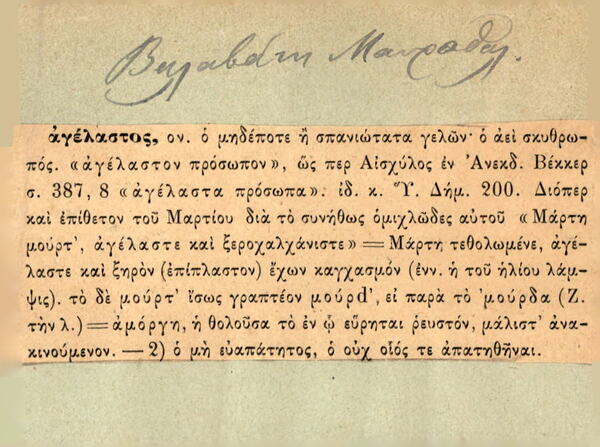 ἀγέλαστος, ον. ὁ μηδέποτε ἢ σπανιώτατα γελῶν· ὁ ἀεὶ σκυθρω-
πός. «ἀγέλαστον πρόσωπον», ὥς περ Αἰσχύλος ἐν Ἀνεκδ. Βέκκερ
σ. 387, 8 «ἀγέλαστα πρόσωπα». ἰδ. κ. Ὕ. Δήμ. 200. Διόπερ
καὶ ἐπίθετον τοῦ Μαρτίου διὰ τὸ συνήθως ὁμιχλῶδες αὐτοῦ «Μάρτη
μούρτ’, ἀγέλαστε καὶ ξεροχαλχάνιστε» = Μάρτη τεθολωμένε, ἀγέ-
λαστε καὶ ξηρὸν (ἐπίπλαστον) ἔχων καγχασμόν (ἐνν. ἡ τοῦ ἡλίου λάμ-
ψις). τὸ δὲ μούρτ’ ἴσως γραπτέον μούρd’, εἰ παρὰ τὸ ’μούρδα (Ζ.
τὴν λ.) = ἀμόργη, ἡ θολοῦσα τὸ ἐν ᾧ εὕρηται ῥευστόν, μάλιστ’ ἀνα-
κινούμενον. — 2) ὁ μὴ εὐαπάτητος, ὁ οὐχ οἷός τε ἀπατηθῆναι.